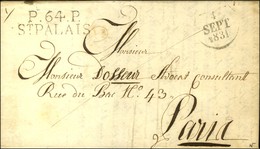 P.64.P.
ST PALAIS
SEPT
1831
Monsieur
Monsieur Dossour Avocat Consultant
Rue du Bac N° 43.
Paris